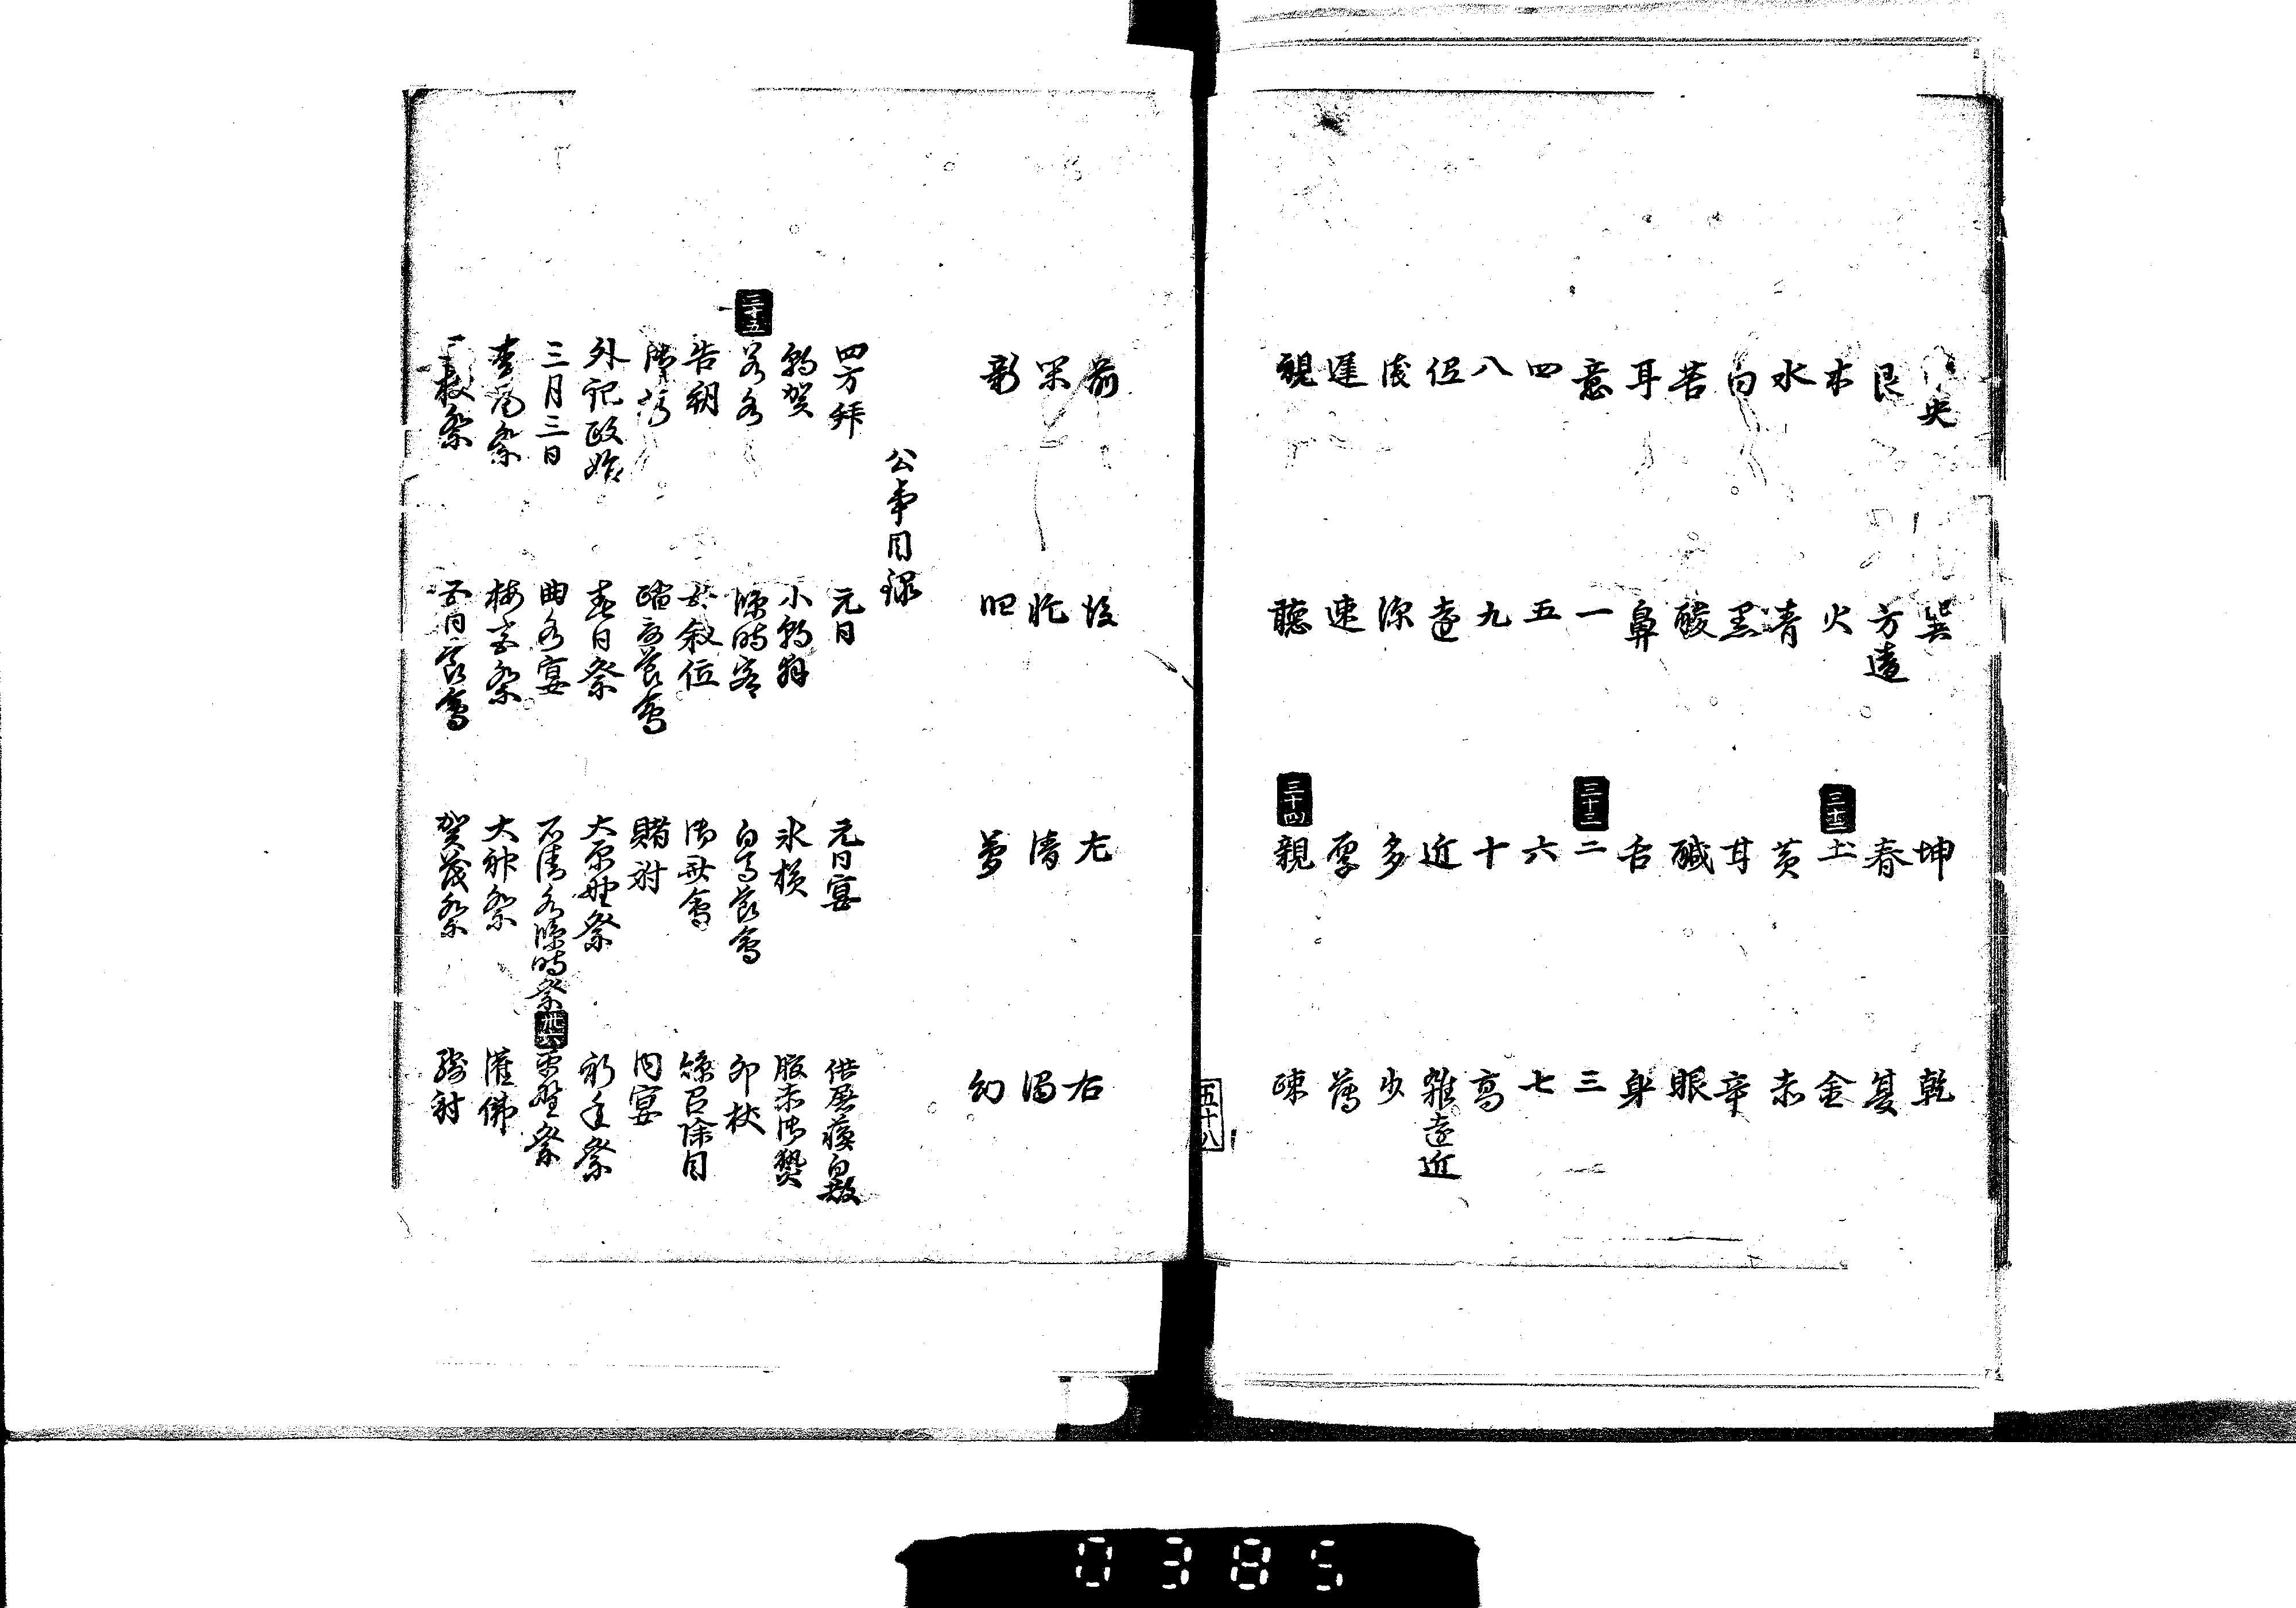 央 巽 坤 乾
艮 方違 春 夏
木 火 土 金
水 青 黄 赤
白 黒 甘 辛
苦 酸 鹹 眼
耳 鼻 舌 身
意 一 二 三
四 五 六 七
八 九 十 高
低 遠 近 雑遠近
浅 深 多 少
遅 速 厚 薄
視 聴 親 疎
三十二
三十三
三十四
五十八
前 後 左 右
清 濁
影 夢 幻
公事目録
四方拝 元日 元日宴 供屠蘇白散
朝賀 小朝拝 氷様 腹赤御贄
三十五
若水 臨時客 白馬節会 卯杖
告朔 女叙位 御斎会 縣召除目
踏歌節会 賭射 内宴
外記政始 春日祭 大原野祭 祈年祭
三月三日 曲水宴 石清水臨時祭
平野祭
梅宮祭 大神祭 灌佛
三枝祭 五日節会 賀茂祭 騎射
0385